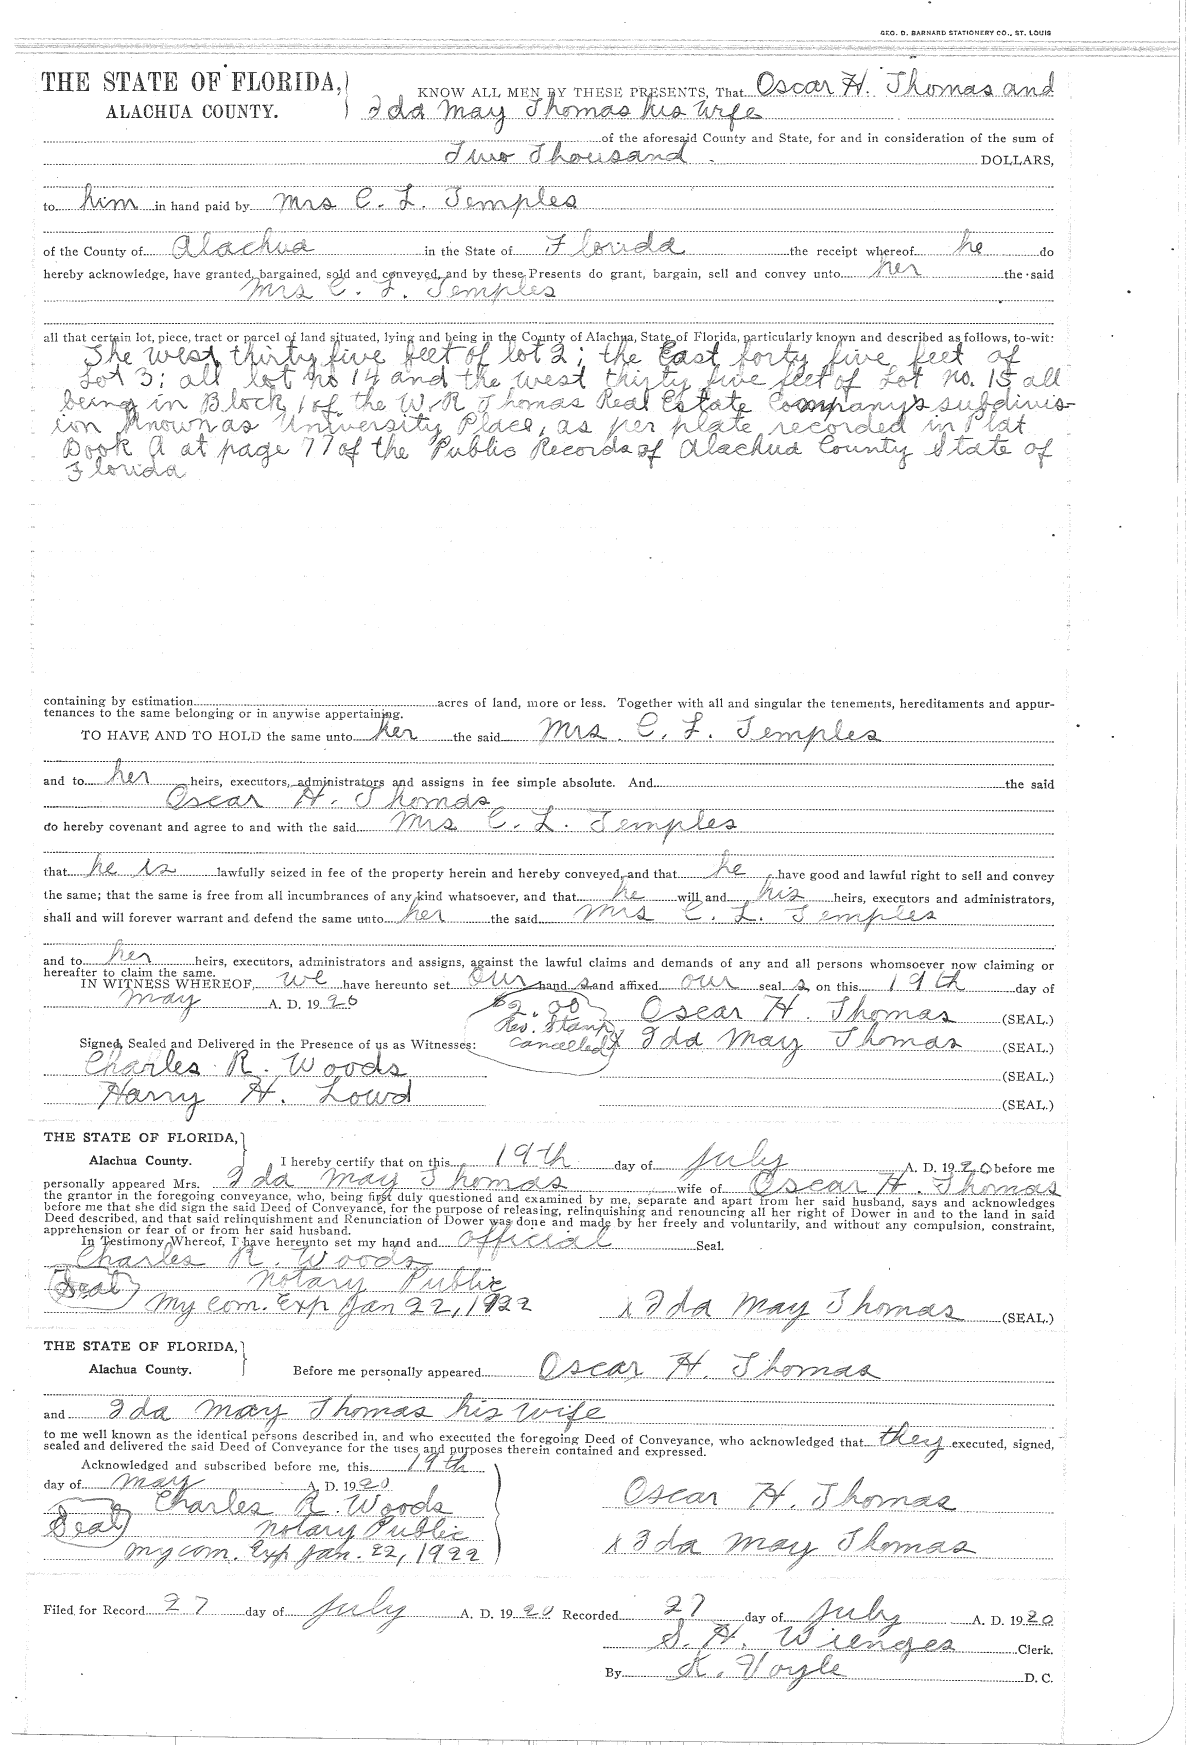 GEO. D. BARNARD STATIONERY CO., ST. LOUIS
THE STATE OF FLORIDA, KNOW ALL MEN BY THESE PRESENTS, That Oscar H. Thomas and
ALACHUA COUNTY. Ida May Thomas his wife
of the aforesaid County and State, for and in consideration of the sum of
Two Thousand DOLLARS,
to him in hand paid by Mrs C. L. Temples
of the County of Alachua in the State of Florida the receipt whereof he do
hereby acknowledge, have granted, bargained, sold and conveyed, and by these Presents do grant, bargain, sell and convey unto her the said
Mrs C. L. Temples
all that certain lot, piece, tract or parcel of land situated, lying and being in the County of Alachua, State of Florida, particularly known and described as follows, to-wit:
The west thirty five feet of lot 2; the East forty five feet of
Lot 3; all lot no 14 and the west thirty five feet of Lot no. 15 all
being in Block 1 of the W.R Thomas Real Estate Company's subdivis-
ion known as University Place, as per plate recorded in Plat
Book A at page 77 of the Public Records of Alachua County State of
Florida
containing by estimation acres of land, more or less. Together with all and singular the tenements, hereditaments and appur-
tenances to the same belonging or in anywise appertaining.
TO HAVE AND TO HOLD the same unto her the said Mrs. C. L. Temples
and to her heirs, executors, administrators and assigns in fee simple absolute. And the said
Oscar H. Thomas
do hereby covenant and agree to and with the said Mrs C. L. Temples
that he is lawfully seized in fee of the property herein and hereby conveyed, and that he have good and lawful right to sell and convey
the same; that the same is free from all incumbrances of any kind whatsoever, and that he will and his heirs, executors and administrators,
shall and will forever warrant and defend the same unto her the said Mrs C. L. Temples
and to her heirs, executors, administrators and assigns, against the lawful claims and demands of any and all persons whomsoever now claiming or
hereafter to claim the same.
IN WITNESS WHEREOF, we have hereunto set our hand s and affixed our seal s on this 19th day of
May A. D. 1920 $2.00 Oscar H. Thomas (SEAL.)
Rev. Stamp
Signed, Sealed and Delivered in the Presence of us as Witnesses: Cancelled x Ida May Thomas (SEAL.)
Charles R. Woods (SEAL.)
Harry H. Lowd (SEAL.)
THE STATE OF FLORIDA,
Alachua County. I hereby certify that on this 19th day of July A. D. 1920 before me
personally appeared Mrs. Ida May Thomas wife of Oscar H. Thomas
the grantor in the foregoing conveyance, who, being first duly questioned and examined by me, separate and apart from her said husband, says and acknowledges
before me that she did sign the said Deed of Conveyance, for the purpose of releasing, relinquishing and renouncing all her right of Dower in and to the land in said
Deed described, and that said relinquishment and Renunciation of Dower was done and made by her freely and voluntarily, and without any compulsion, constraint,
apprehension or fear of or from her said husband.
In Testimony Whereof, I have hereunto set my hand and official Seal.
Charles R. Woods
Seal Notary Public
My com. Exp Jan 22, 1922 x Ida May Thomas (SEAL.)
THE STATE OF FLORIDA,
Alachua County. Before me personally appeared Oscar H. Thomas
and Ida May Thomas his wife
to me well known as the identical persons described in, and who executed the foregoing Deed of Conveyance, who acknowledged that they executed, signed,
sealed and delivered the said Deed of Conveyance for the uses and purposes therein contained and expressed.
Acknowledged and subscribed before me, this 19th
day of May A. D. 1920 Oscar H. Thomas
Charles R. Woods
Seal Notary Public x Ida May Thomas
My com. Exp Jan. 22, 1922
Filed for Record 27 day of July A. D. 1920 Recorded 27 day of July A. D. 1920
S. H. Wienges Clerk.
By K. Voyle D. C.